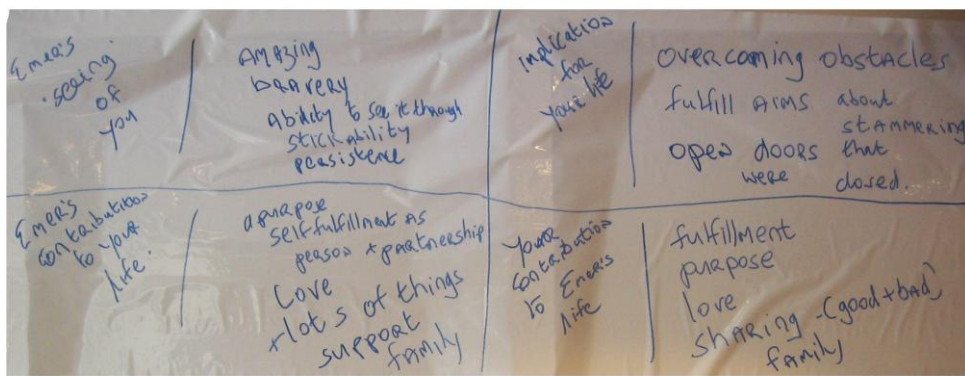 Emer's
seeing
of
you
AMAZING
BRAVERY
Ability to see it through
STICKABILITY
PERSISTENCE
Implication
for
your life
OVERCOMING OBSTACLES
fulfill AIMS about
STAMMERING
open doors that
were closed.
Emer's
contribution
to your
life.
a purpose
self fulfillment as
person + partnership
Love
+ lots of things
support
family
your
contribution
to Emer's
life
fulfillment
purpose
love
sharing - (good + bad)
family